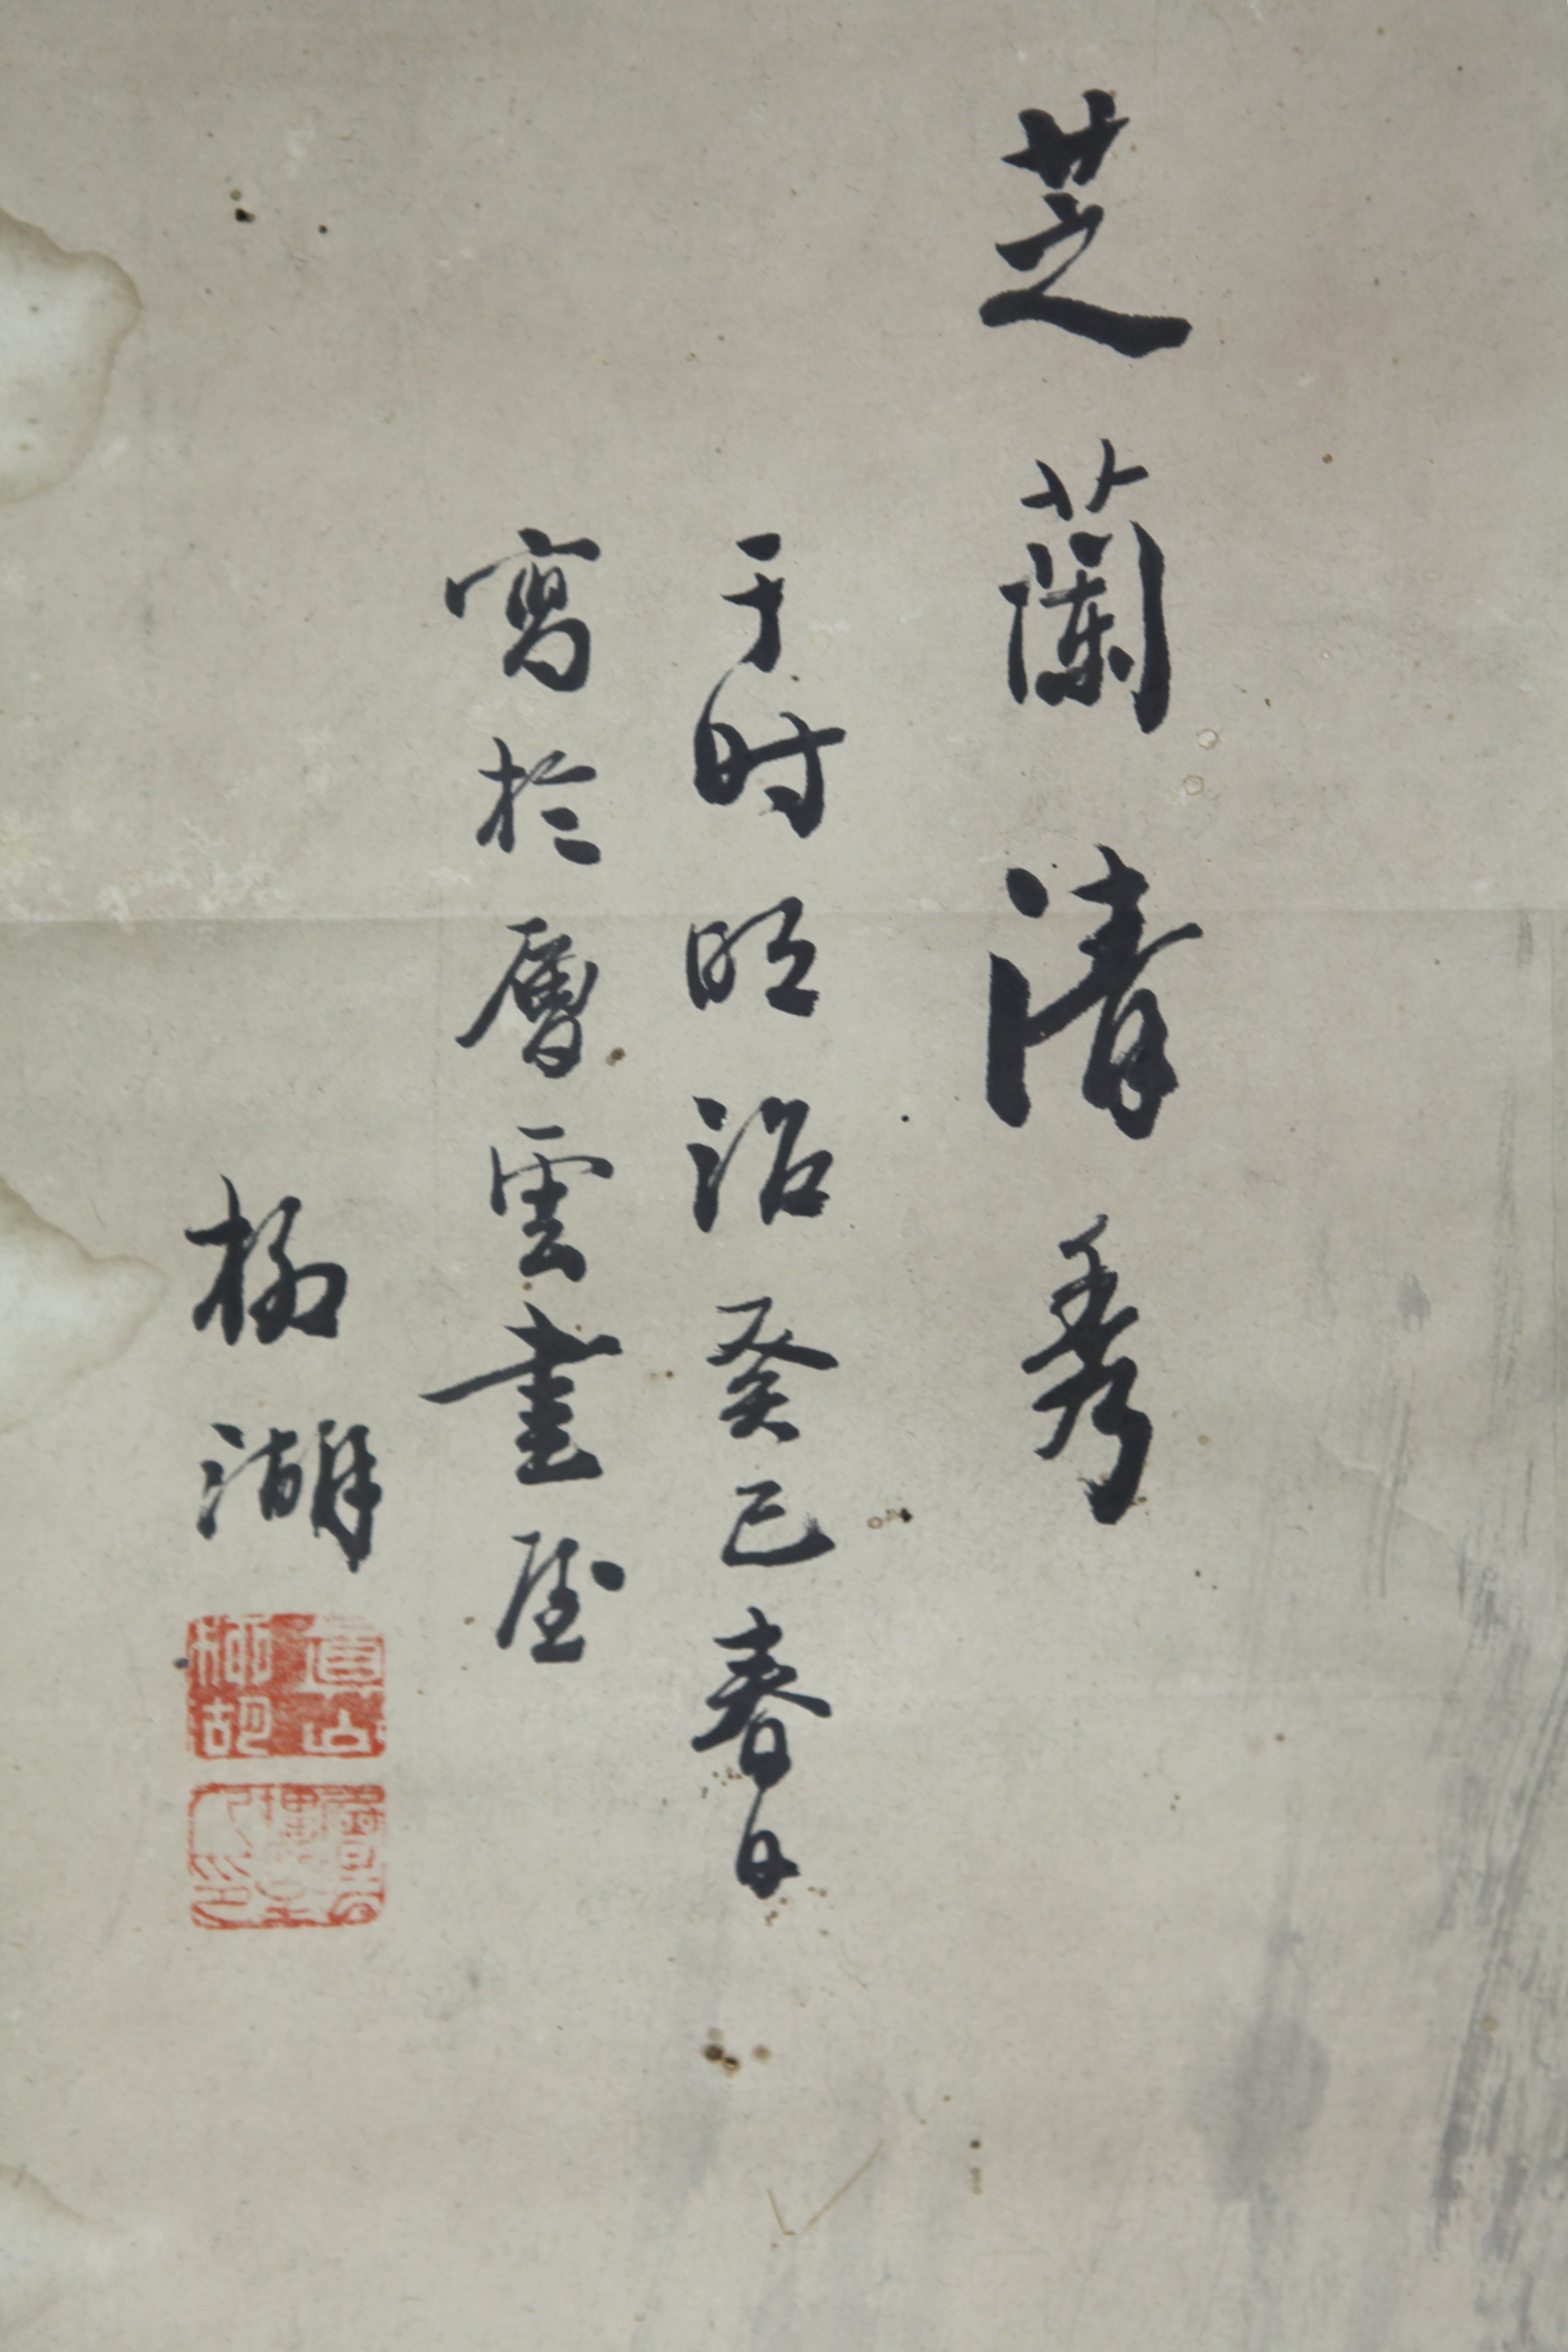 芝蘭清秀
于时明治癸巳春日
寫於層雲畫屋
柳湖